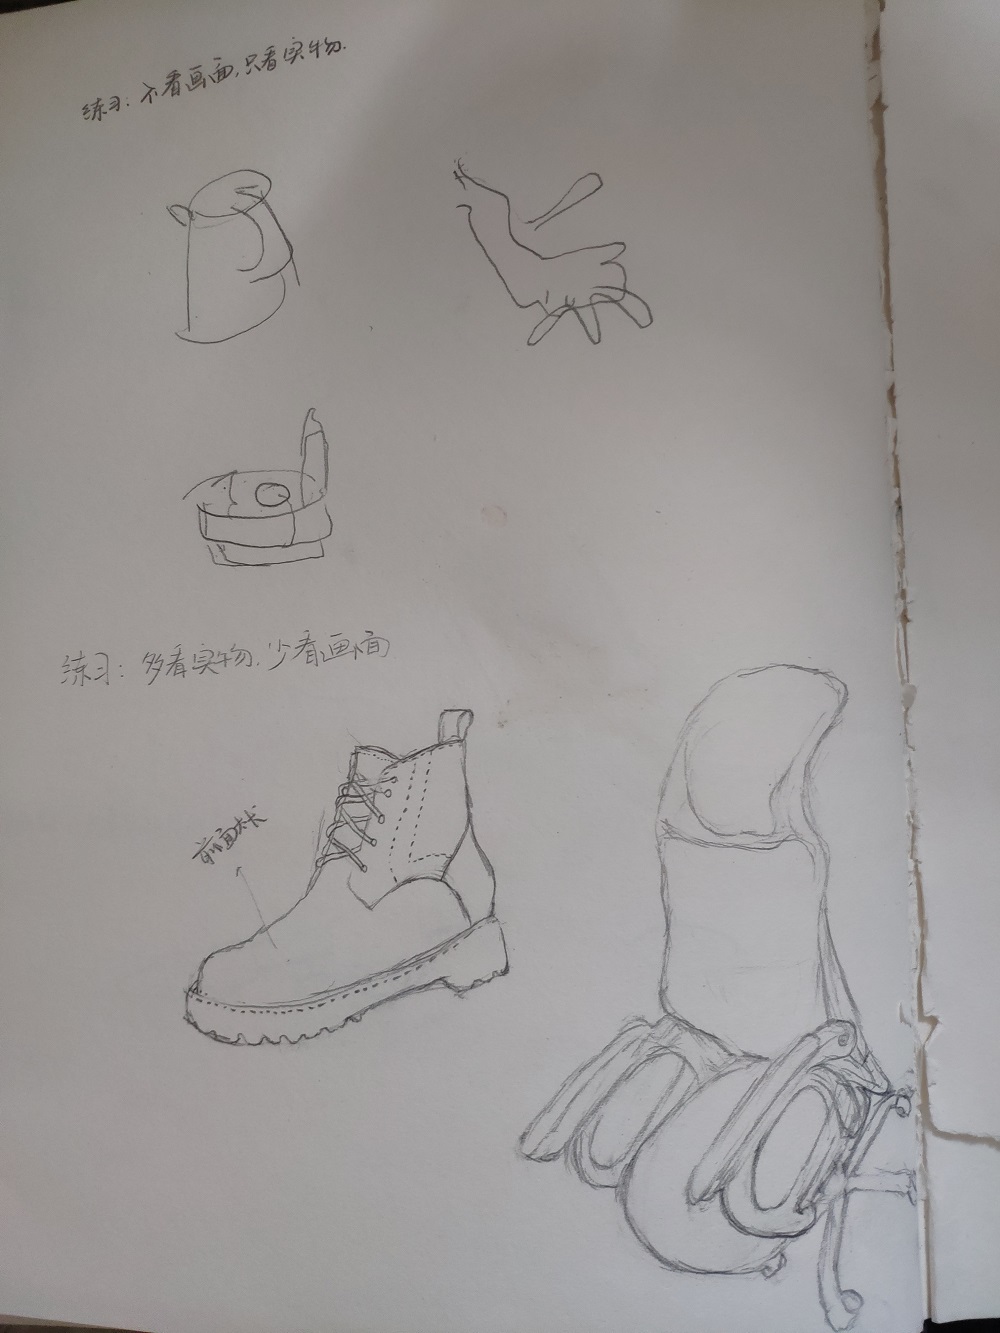 练习：不看画面，只看实物.
练习：多看实物，少看画面
前面太长